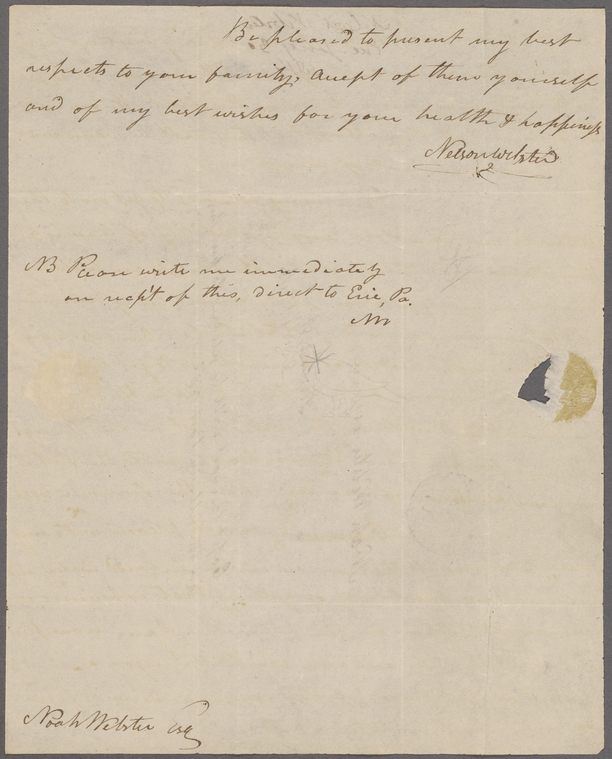 Be pleased to present my best
respects to your family, accept of them yourself
and of my best wishes for your health & happiness
Nelson Webster
NB Please write me immediately
on recpt of this, direct to Erie, Pa.
NW
Noah Webster Esq